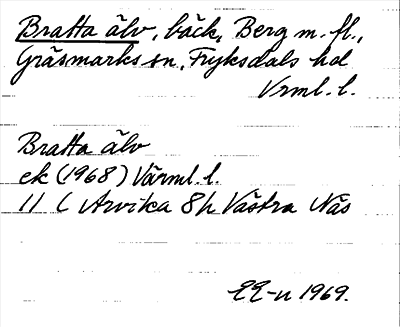 Bratta älv, bäck, Berg m. fl.,
Gräsmarks sn, Fryksdals hd
Vrml. l.
Bratta älv
ek (1968) Värml. l.
11 C Arvika 8h Västra Näs
EE-n 1969.